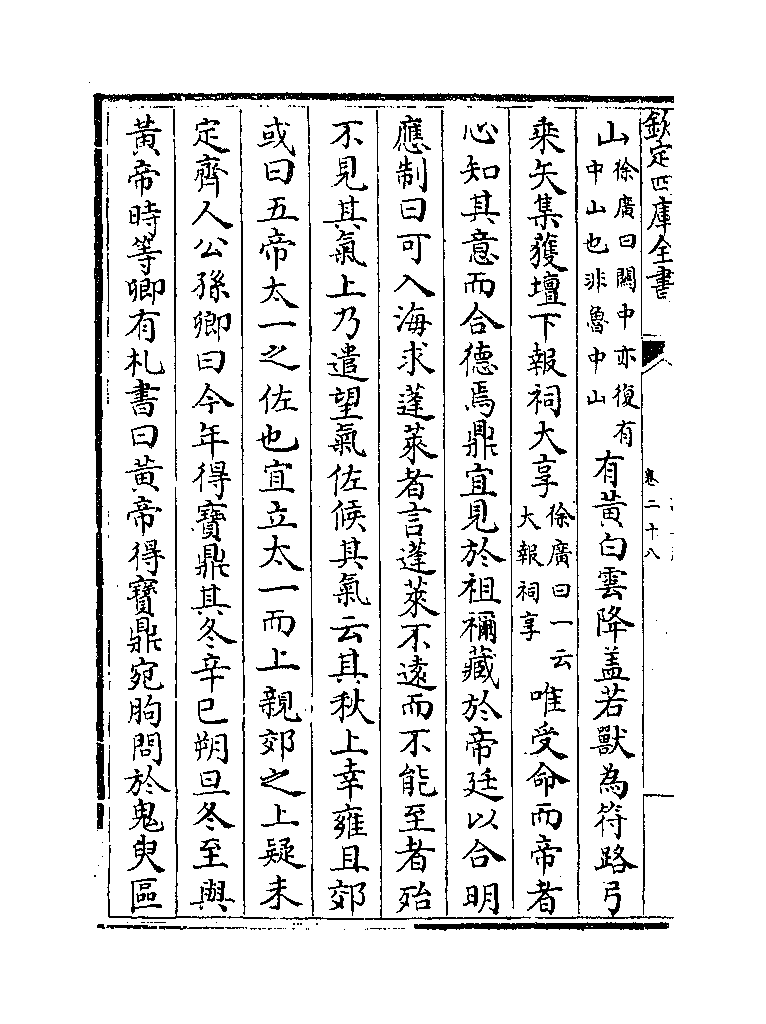 欽定四庫全書
卷二十八
山徐廣曰關中亦復有中山也非魯中山有黃白雲降盖若獸為符路弓
乗矢集獲壇下報祠大享徐廣曰一云大報祠享唯受命而帝者
心知其意而合德焉鼎宜見於祖禰藏於帝廷以合明
應制曰可入海求蓬萊者言蓬萊不遠而不能至者殆
不見其氣上乃遣望氣佐候其氣云其秋上幸雍且郊
或曰五帝太一之佐也宜立太一而上親郊之上疑未
定齊人公孫卿曰今年得寶鼎其冬辛巳朔旦冬至與
黃帝時等卿有札書曰黃帝得寶鼎宛朐問於鬼臾區